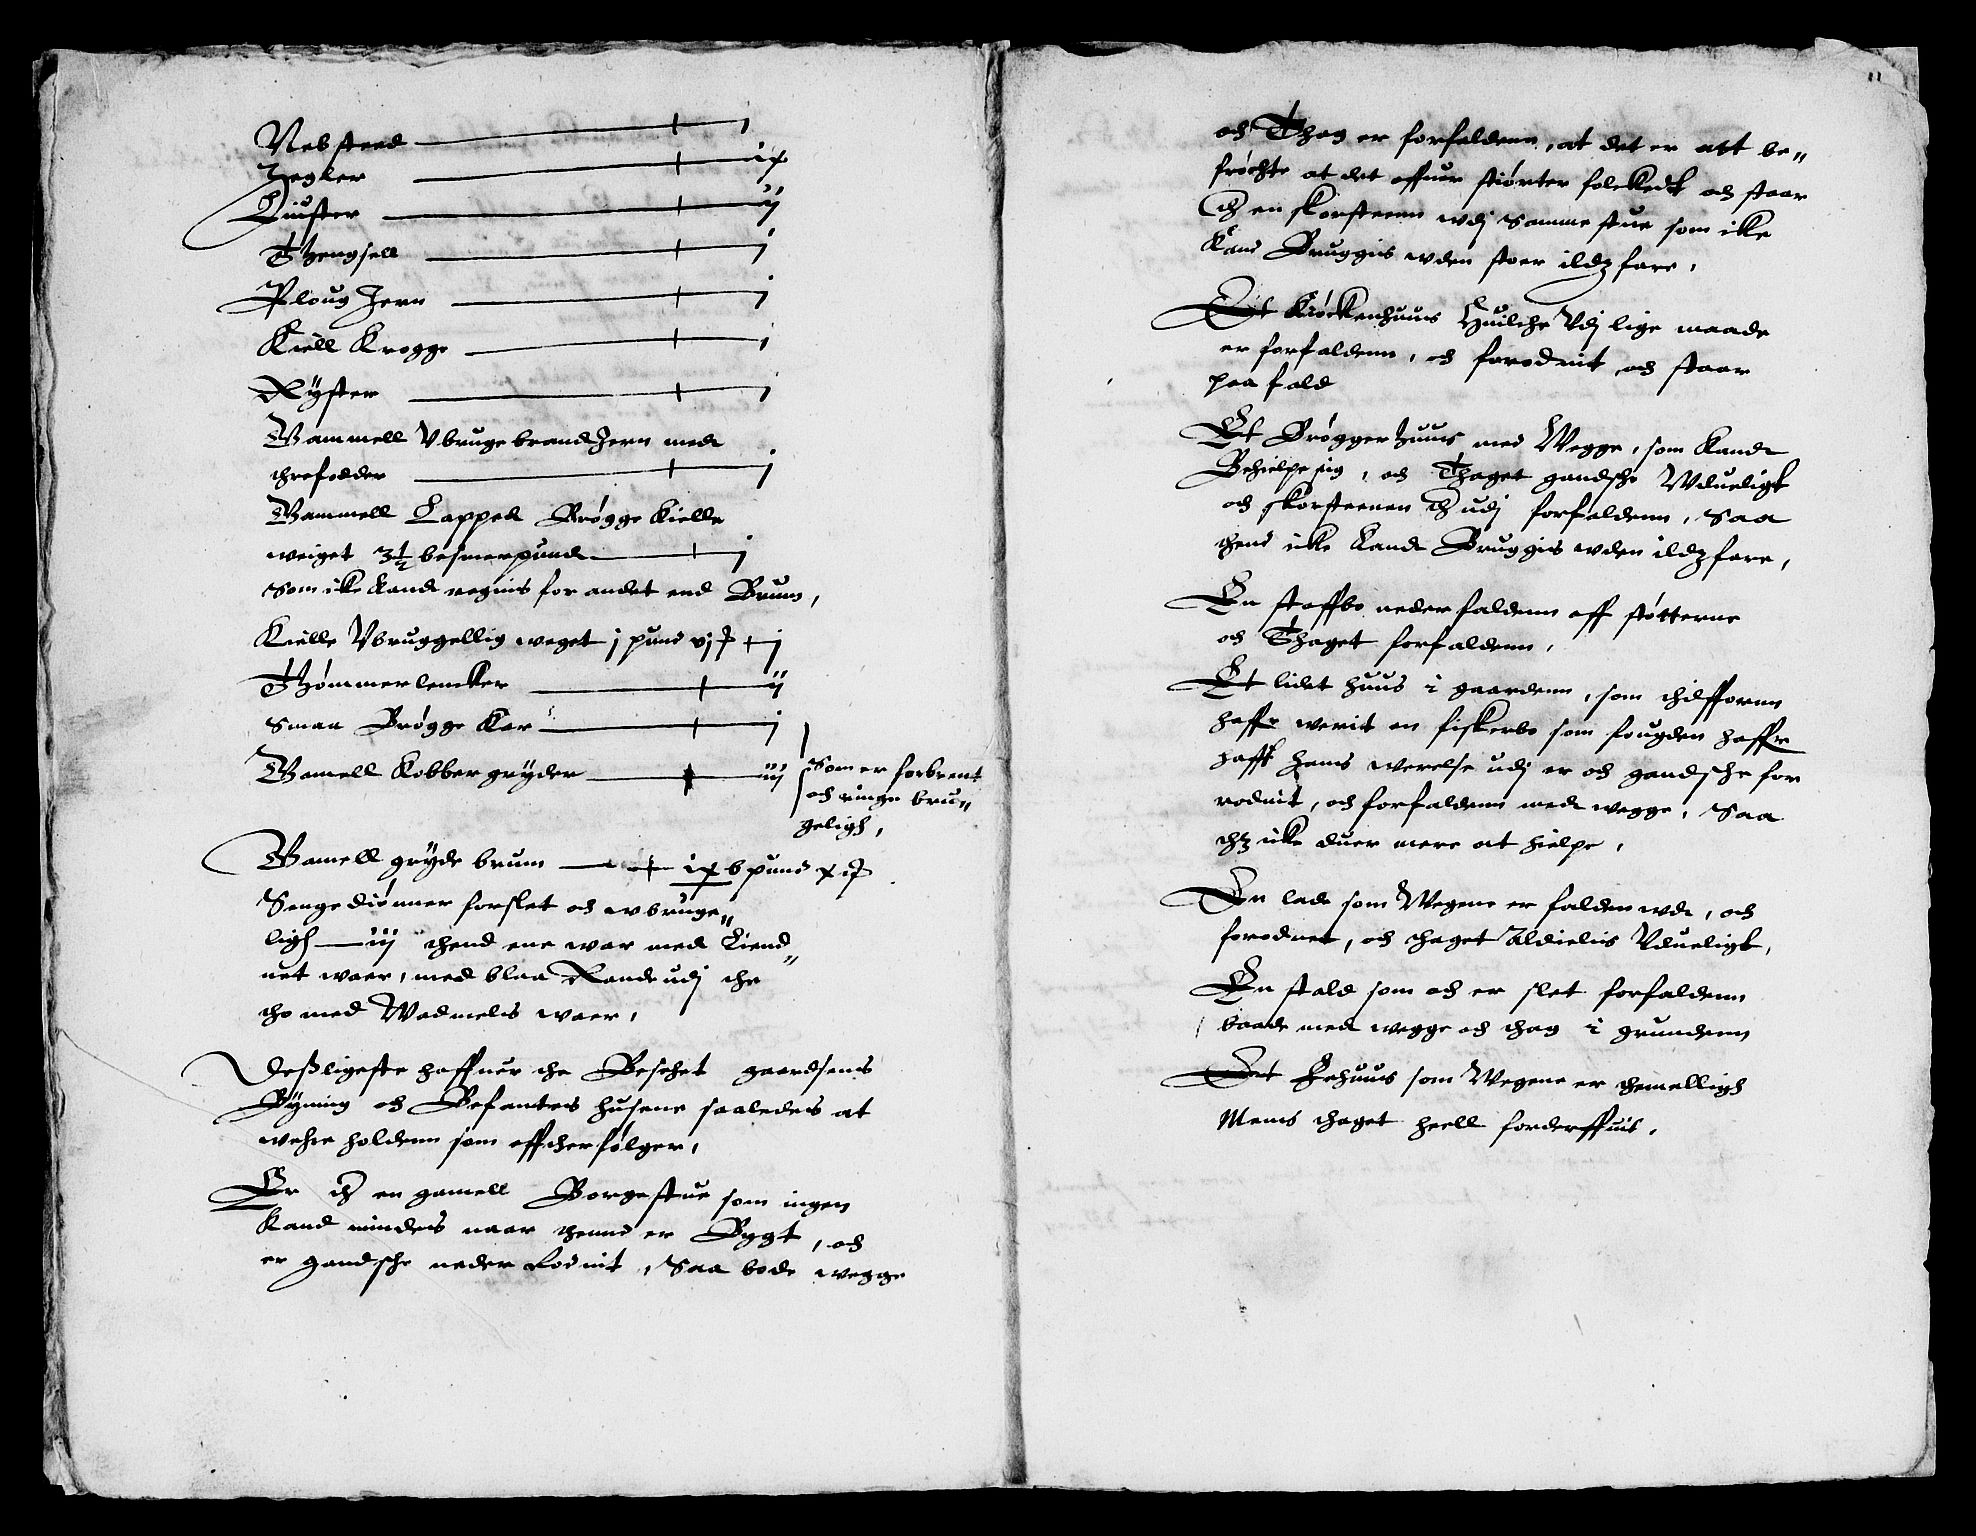 Nebsteed — j
Zegler — ix
Liuster — ij
Thengsell — j
Ploug Jern — j
Kiell Krogge — j
Ryster — j
Gammell Vbruge brand Jern med
threfødder — j
Gammell Lapped Brøgge Kielle
weiget 3½ besmerpund — j
Som icke kand regnis for andet end Brum,
Kielle Vbruggellig weget j pund vj — j
Thømmerlencker — ij
Smaa Brøgge Kar — j
Gamell Kobber gryder — iij
Som er forbrent
och ringe bru„
geligh,
Gamell gryde brum — ix b pund
Senge diømner forslet och wbruge„
ligh — iij thend ene war med Liend„
uet waer, med blaa Rande udj the
tho med Wadmelis waer,
Deßligeste haffuer the Besehet gaardsens
Bÿning och Befantes husene saaledes at
wehre holdenn som effther følger,
Er th en gamell Borgestue som ingen
kand mindes naar thend er Bygt, och
er gandsche neder Rodnit, Saa bode wegge
11
och Thag er forfaldenn, at det er att be„
frøchte at det offuer stiørter folckedt och staar
th en skorsteenn wdj samme stue som icke
kand Bruggis wden stoer ildz fare,
Et Kiøckenhuus Huilche Vdj lige maade
er forfaldenn, och forodnit och staar
paa fald
Et Brøggerhuus med Wegge, som kand
Behielpe sig, och Thaget gandsche Wdueligt
och skorsteenen th udj forfaldenn, Saa
thend icke kand Bruggis wden ildz fare,
En staffbo nederfaldenn aff støtterne
och Thaget forfaldenn,
Et lidet huus i gaardenn, som thilffornn
haffr werit en fiskerbo som fougden haffr
hafft hans werelse udj er och gandsche for
rodnit, och forfaldenn med wegge, Saa
thz icke duer mere at hielpe,
En lade som Wegene er falden wde, och
forodnet, och thaget Aldielis Vdueligt,
En stald som och er slet forfaldenn
baade med wegge och thag i grundenn
Et Fehuus som Wegene er themelligh
Mens thaget heell forderffuit,